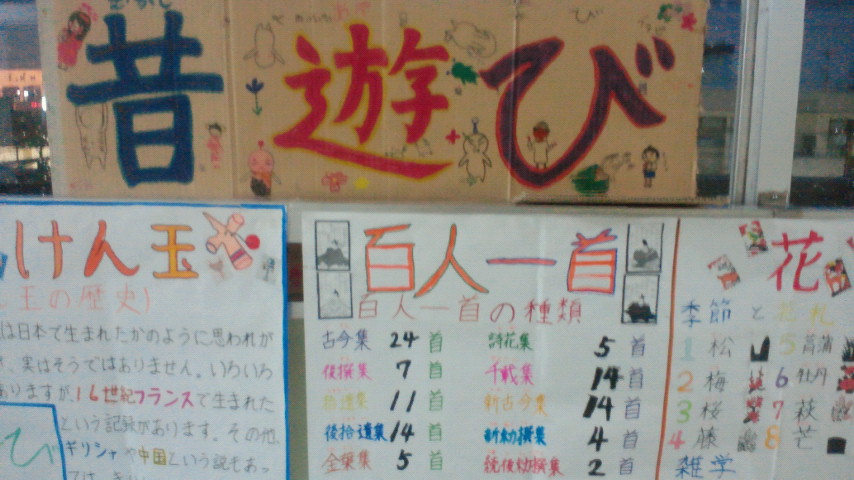 昔遊び
けん玉
玉の歴史)
は日本で生まれたかのように思われが
、実はそうではありません。いろいろ
ありますが、16世紀フランスで生まれた
という記録があります。その他、
ギリシャや中国という説もあっ
び
百人一首
百人一首の種類
古今集 24首
後撰集 7首
拾遺集 11首
後拾遺集 14首
金葉集 5首
詩花集 5首
千載集 14首
新古今集 14首
新勅撰集 4首
続後勅撰集 2首
花
季節と花札
1 松
2 梅
3 桜
4 藤
5 菖蒲
6 牡丹
7 萩
8 芒
雑学